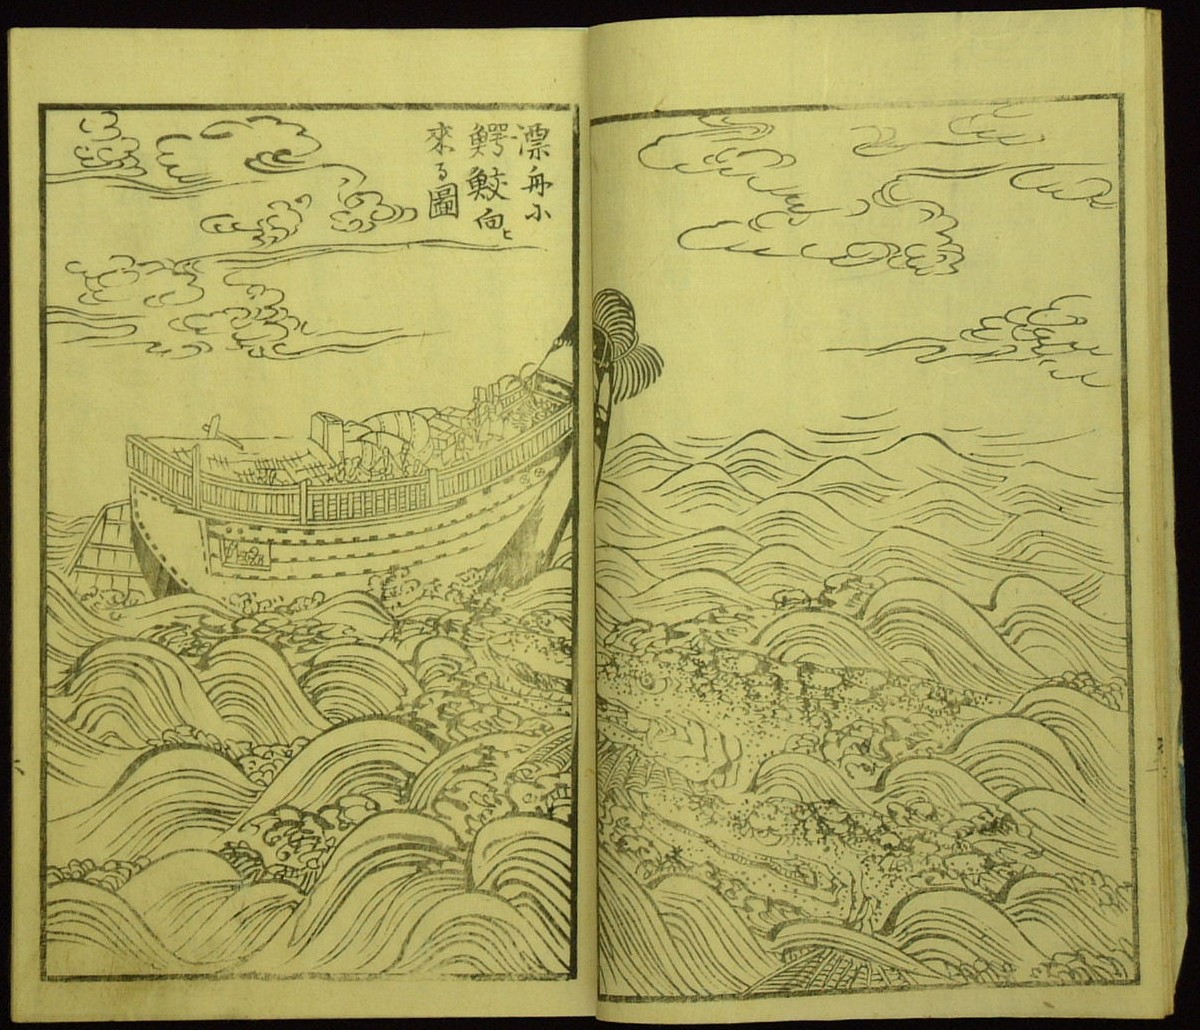 漂舟小
鰐鮫向ヒ
來る圖